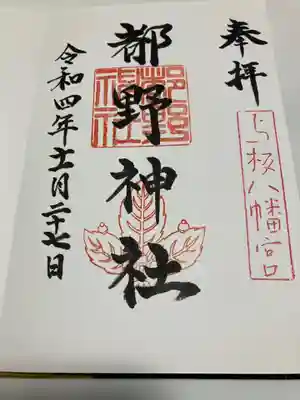 奉拝
与板八幡宮
都野神社
都野神社
令和四年十一月二十七日